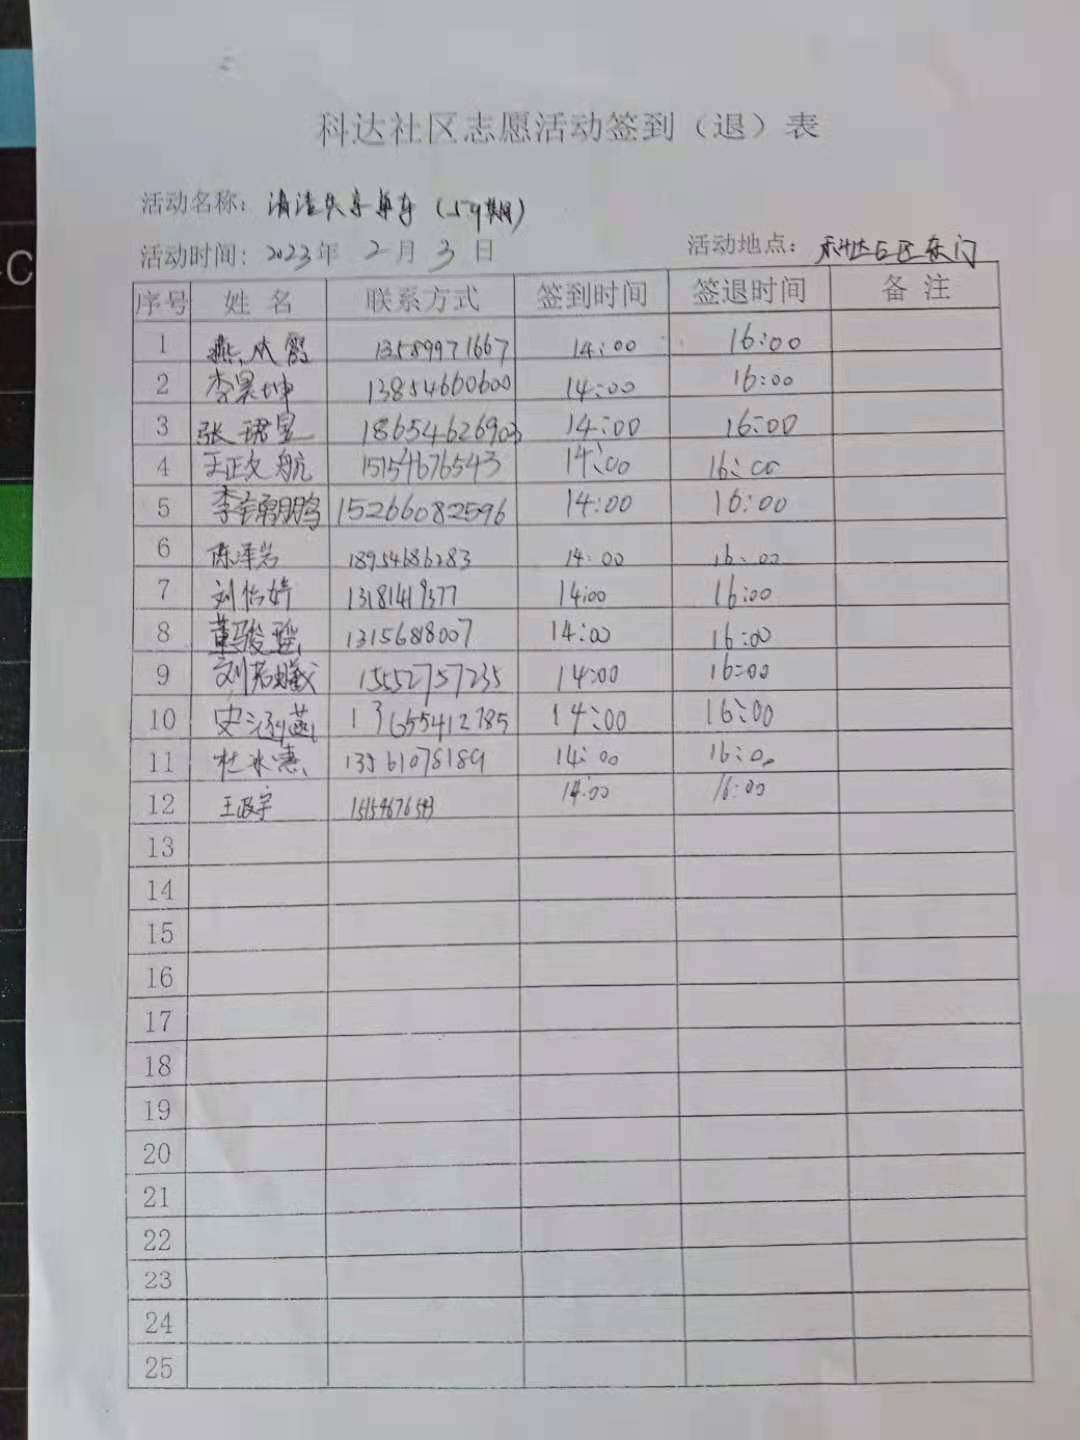 科达社区志愿活动签到（退）表
活动名称： 清洁共享单车（59期）
活动时间：2023年 2月 3日 活动地点：科达E区东门
序号 姓名 联系方式 签到时间 签退时间 备注
1 13589971667 14:00 16:00
2 李昊坤 13854660600 14:00 16:00
3 张珺昱 18654626903 14:00 16:00
4 王政航 15154676543 14:00 16:00
5 15266082596 14:00 16:00
6 陈泽岩 18954686283 14:00 16:00
7 刘怡婷 13181419377 14:00 16:00
8 董骏瑶 1315688007 14:00 16:00
9 刘若曦 15552757235 14:00 16:00
10 史涵菡 13655412785 14:00 16:00
11 杜冰惠 13561078189 14:00 16:00
12 王政宇 14:00 16:00
13
14
15
16
17
18
19
20
21
22
23
24
25